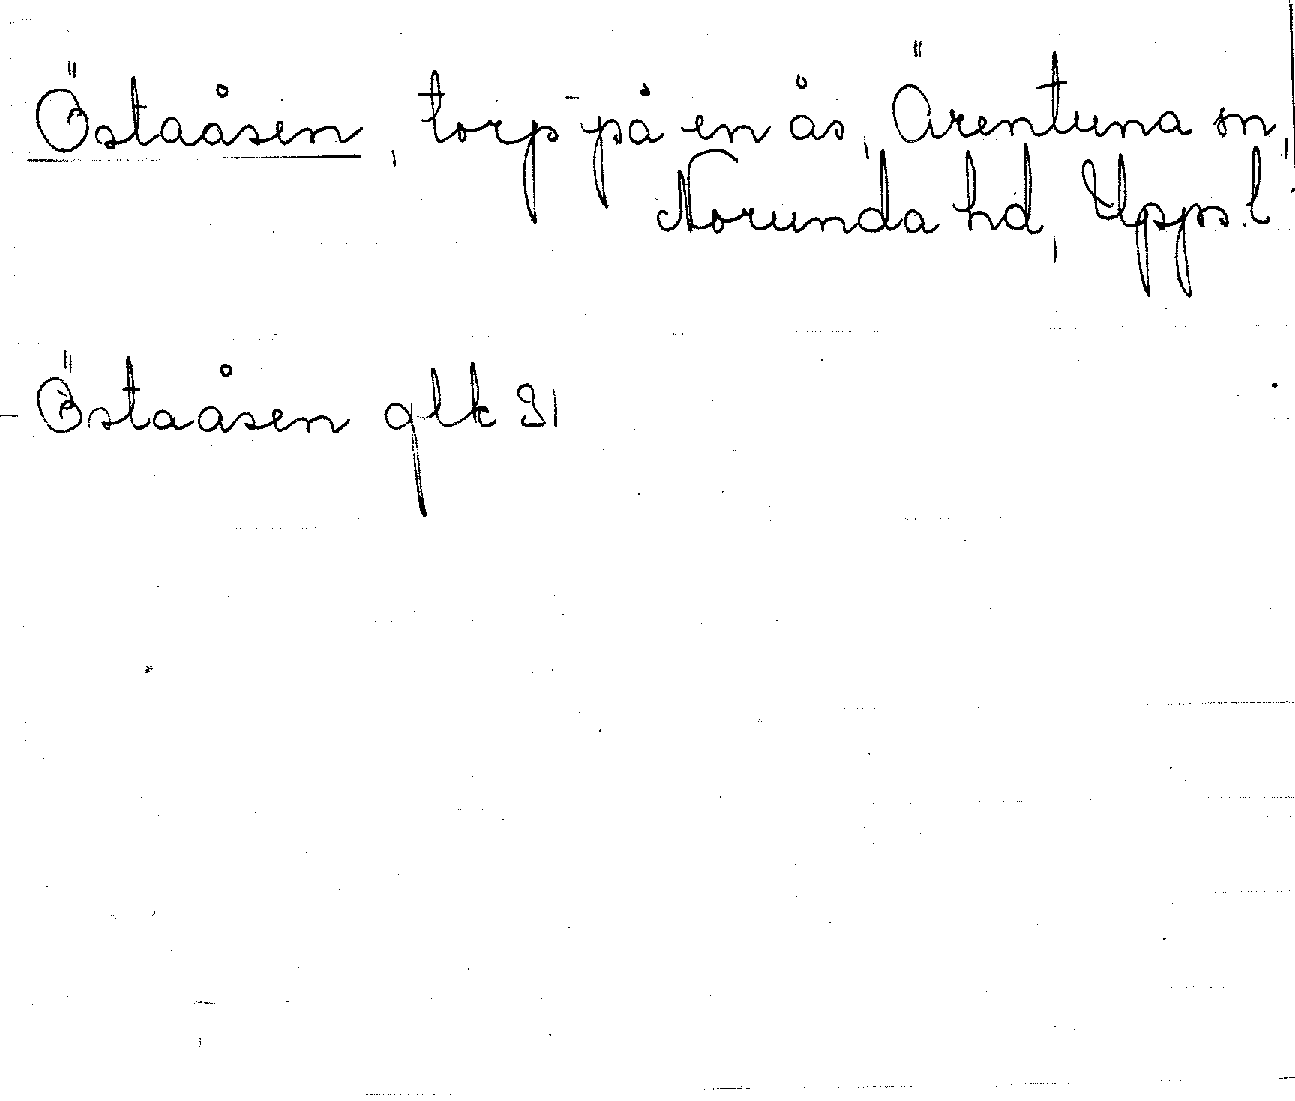 Östaåsen, torp på en ås, Ärentuna sn,
Norunda hd, Upps. l
Östaåsen glk 91